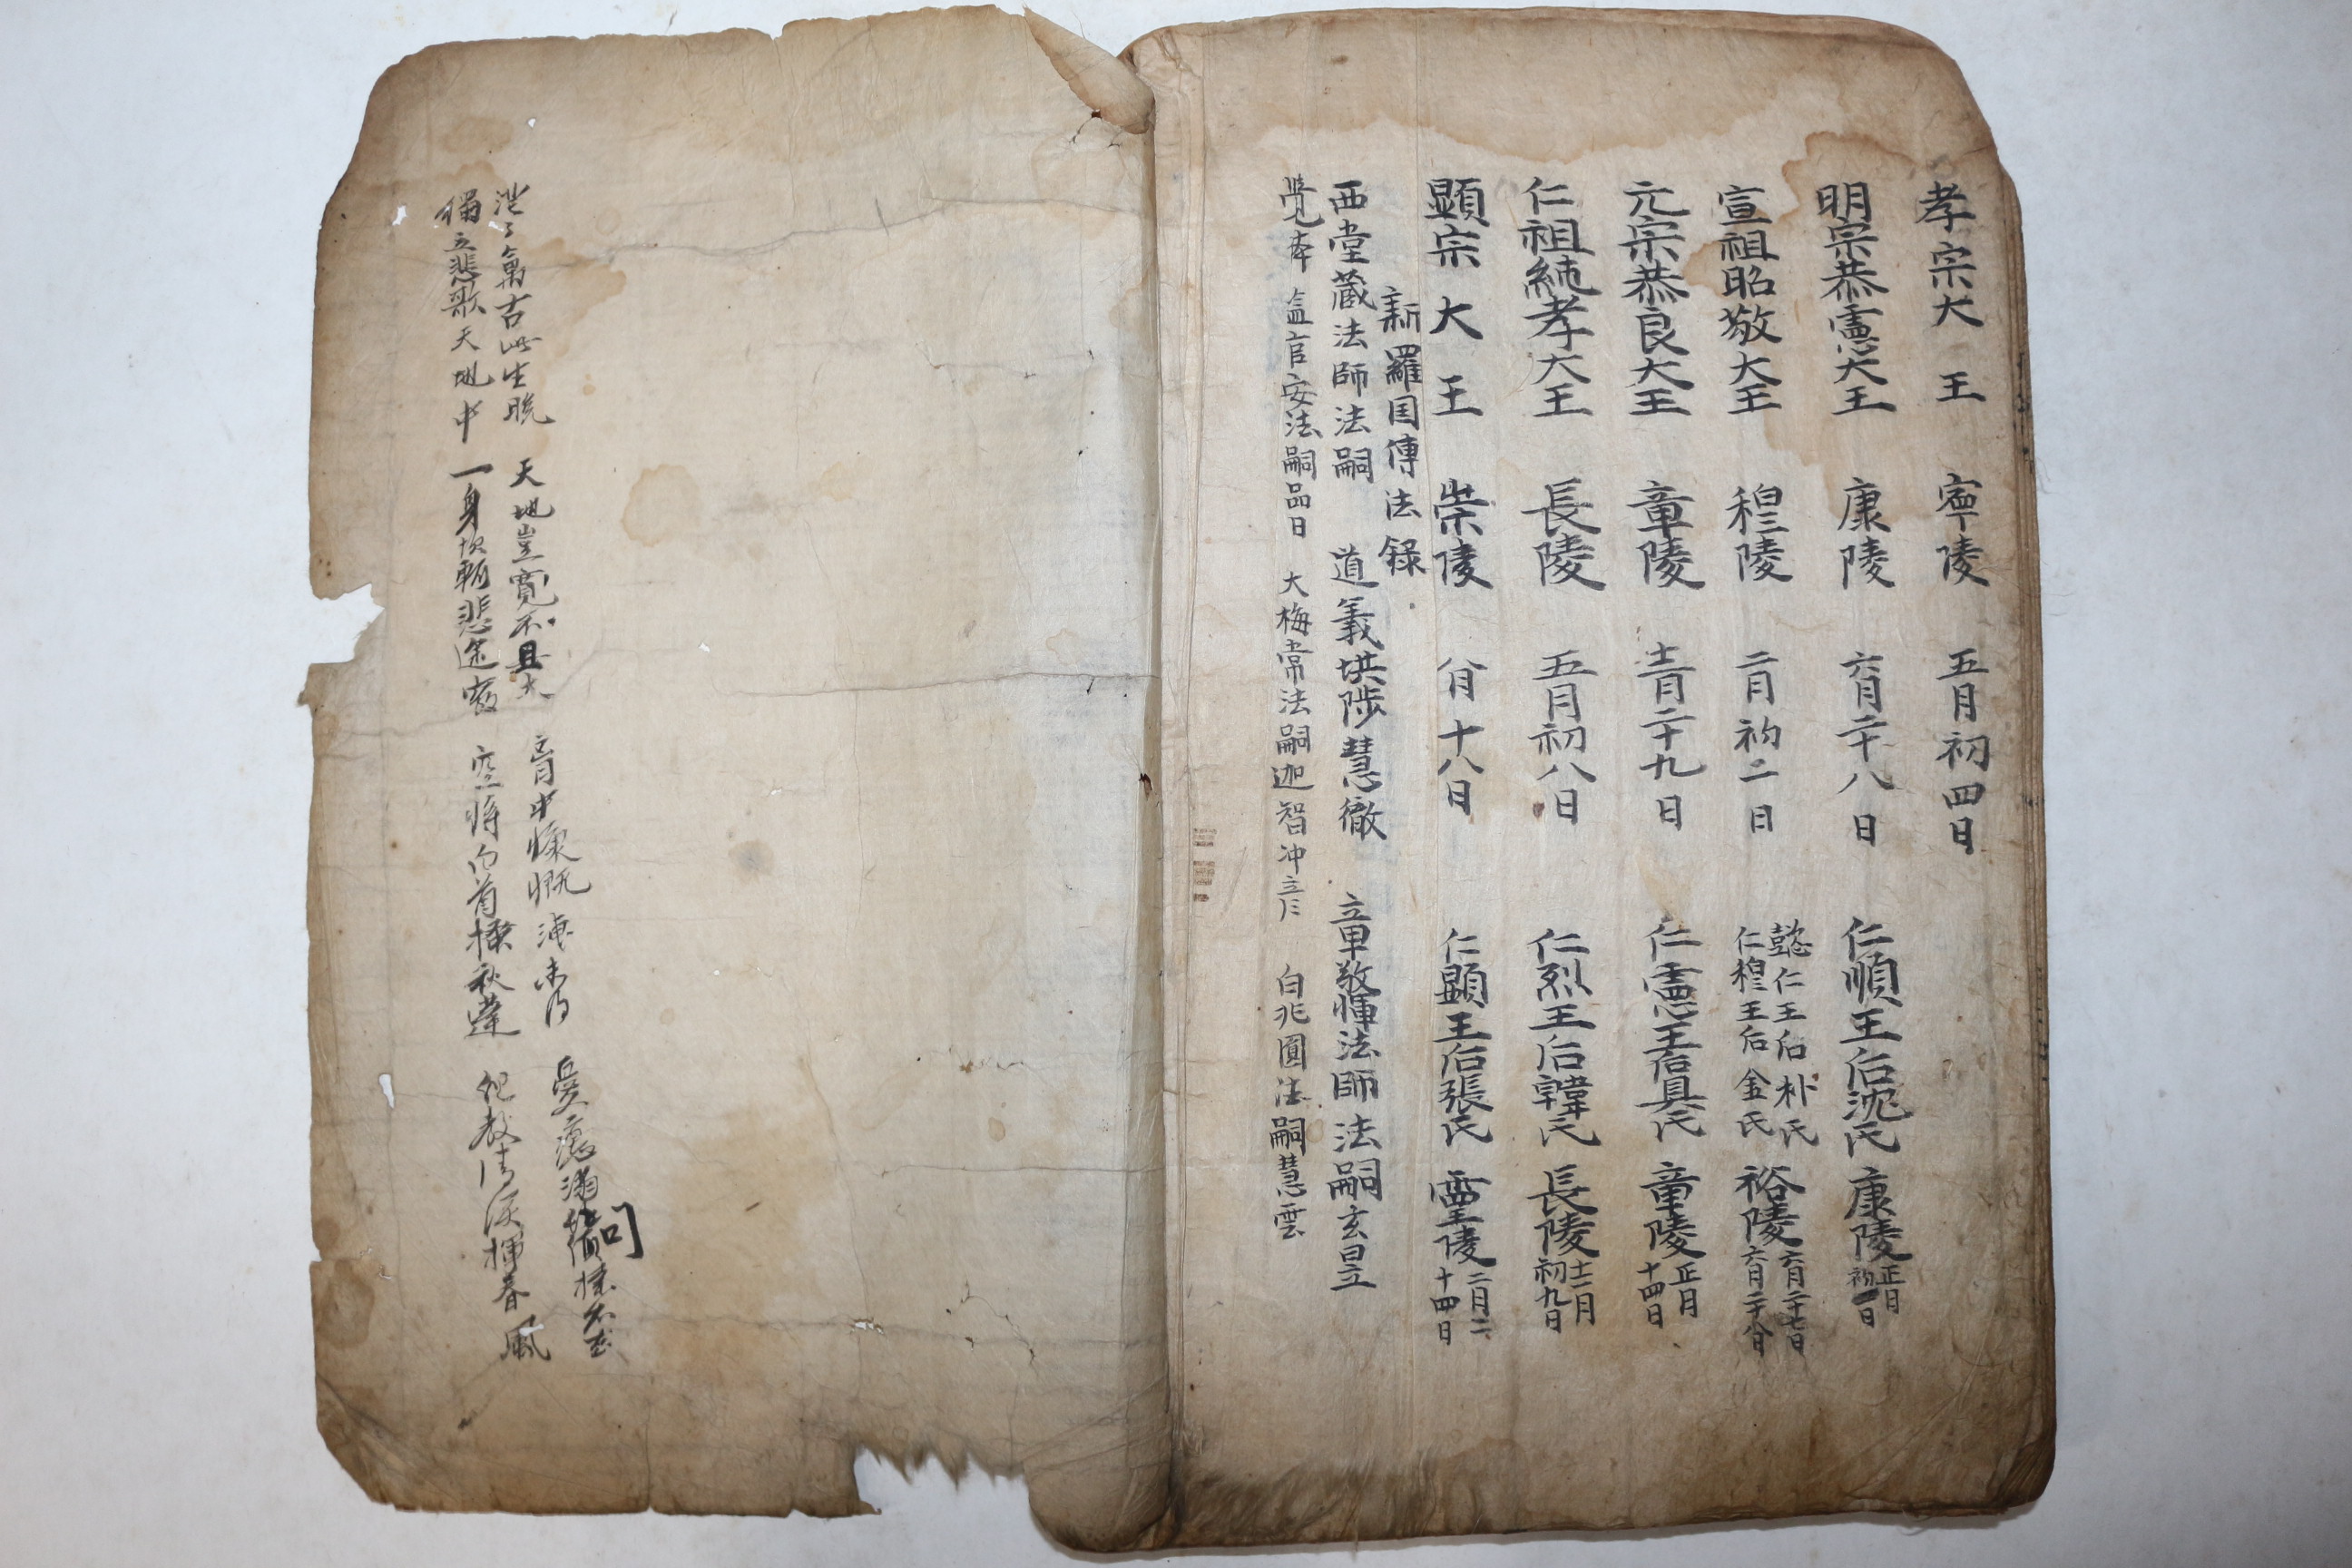 孝宗大王 寧陵 五月初四日
明宗恭憲大王 康陵 六月二十八日 仁順王后沈氏 康陵 正月初二日
宣祖昭敬大王 穆陵 二月初二日 懿仁王后朴氏 仁穆王后金氏 裕陵 六月二十七日 六月二十八日
元宗恭良大王 章陵 十二月二十九日 仁憲王后具氏 章陵 正月十四日
仁祖純孝大王 長陵 五月初八日 仁烈王后韓氏 長陵 十二月初九日
顯宗大王 崇陵 八月十八日 仁顯王后張氏 二月二十四日
新羅国傳法錄
西堂藏法師法嗣 道義 洪陟 慧徹 章敬惲法師法嗣玄昱
覺本 盐官安法嗣品日 大梅常法嗣迦智冲彦 白兆圓法嗣慧雲
萬古此生晚 天地豈寬不且大 胸中慷慨
獨立悲歌天地中 一身坎軻悲途窮 空將白首 秋蓬 清淚揮春風